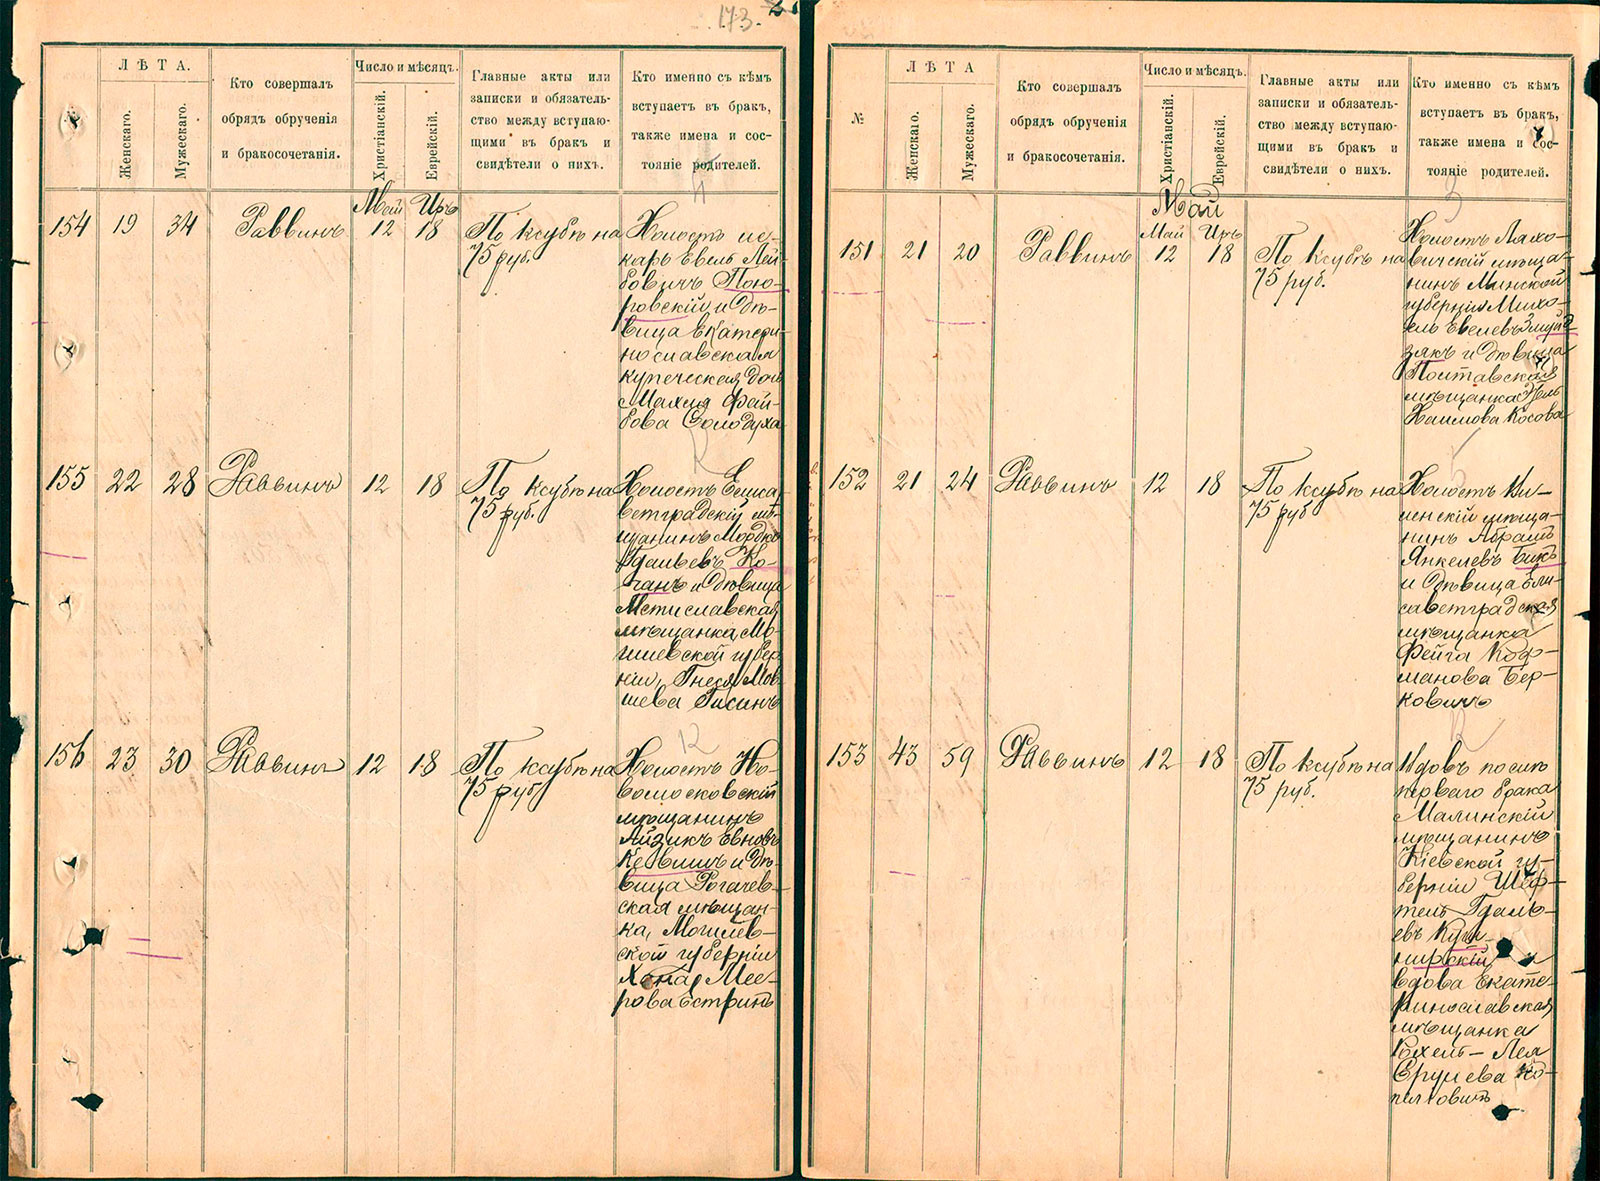 173.
ЛѢТА.
Женскаго.
Мужескаго.
Кто совершалъ
обрядъ обрученія
и бракосочетанія.
Число и мѣсяцъ.
Христіанскій.
Еврейскій.
Главные акты или
записки и обязатель-
ство между вступаю-
щими въ бракъ и
свидѣтели о нихъ.
Кто именно съ кѣмъ
вступаетъ въ бракъ,
также имена и сос-
тояніе родителей.
Май Иръ
154 19 34 Раввинъ 12 18
По ксубѣ на
75 руб.
Холостъ ле-
карь Евель Лей-
бовичъ Пою-
ровскій и дѣ-
вица Екатери-
нославская
купеческая дочь
Махля Фай-
бова Солодуха
155 22 28 Раввинъ 12 18
По ксубѣ на
75 руб.
Холостъ Елиса-
ветградскій мѣ-
щанинъ Мордко
Гдальевъ Ко-
ганъ и дѣвица
Мстиславская
мѣщанка, Мо-
гилевской губер-
ніи, Гнеся Мов-
шева Гисинъ
156 23 30 Раввинъ 12 18
По ксубѣ на
75 руб.
Холостъ Но-
вомосковскій
мѣщанинъ
Айзикъ Евновъ
и дѣ-
вица Рогачев-
ская мѣщан-
ка, Могилев-
ской губерніи
Хана Мее-
рова Эстринъ
№
ЛѢТА
Женскаго.
Мужескаго.
Кто совершалъ
обрядъ обрученія
и бракосочетанія.
Число и мѣсяцъ.
Христіанскій.
Еврейскій.
Главные акты или
записки и обязатель-
ство между вступаю-
щими въ бракъ и
свидѣтели о нихъ.
Кто именно съ кѣмъ
вступаетъ въ бракъ,
также имена и сос-
тояніе родителей.
3
Май
Май Иръ
151 21 20 Раввинъ 12 18
По ксубѣ на
75 руб.
Холостъ Ляхо-
вичскій мѣща-
нинъ Минской
губерніи Михо-
ель Евелевъ Змуйд-
зякъ и дѣвица
Полтавская
мѣщанка
Хаимова Косова
5
152 21 24 Раввинъ 12 18
По ксубѣ на
75 руб
Холостъ Ви-
ленскій мѣща-
нинъ Абрамъ
Янкелевъ Бикъ
и дѣвица Ели-
саветградская
мѣщанка
Фейга Коф-
манова Бер-
ковичъ
153 43 59 Раввинъ 12 18
По ксубѣ на
75 руб.
Вдовъ послѣ
перваго брака
Малинскій
мѣщанинъ
Кіевской гу-
берніи Шеф-
тель Гдаль-
евъ
и
вдова Екате-
ринославская
мѣщанка
Рохель-Лея
Срулева Ко-
пиловичъ